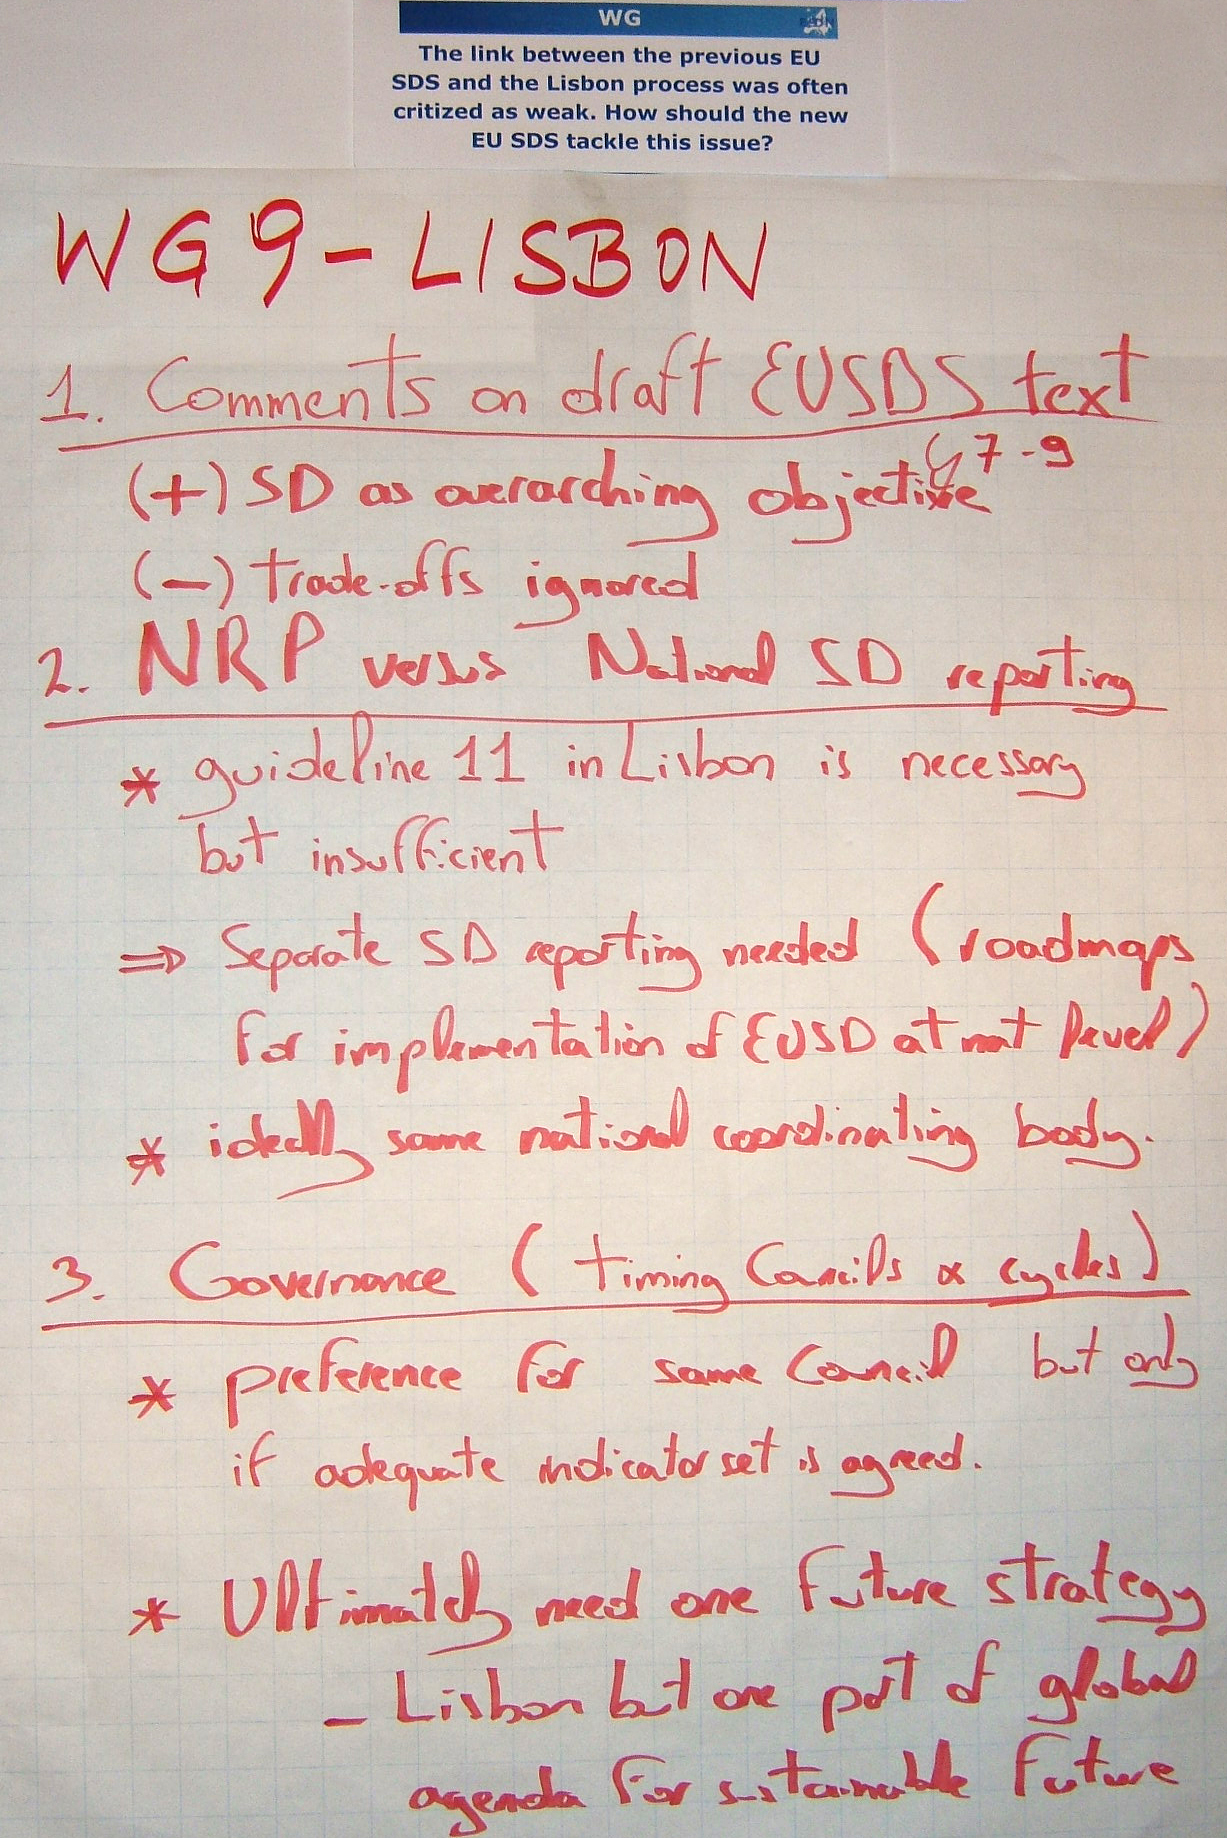 WG
The link between the previous EU
SDS and the Lisbon process was often
critized as weak. How should the new
EU SDS tackle this issue?
WG 9 - LISBON
1. Comments on draft EUSDS text
§ 7-9
(+) SD as overarching objective
(-) trade-offs ignored
2. NRP versus National SD reporting
* guideline 11 in Lisbon is necessary
but insufficient
⇒ Separate SD reporting needed (roadmaps
for implementation of EUSD at nat level)
* ideally same national coordinating body.
3. Governance (timing Councils & cycles)
* preference for same Council but only
if adequate indicator set is agreed.
* Ultimately need one future strategy
- Lisbon but one part of global
agenda for sustainable future